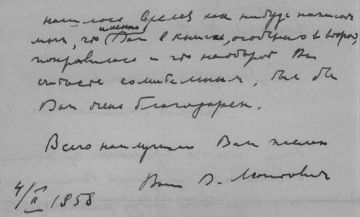 нашлось время как нибудь написать
мне, что именно Вам в книжке, особенно в второй,
понравилось и что наоборот Вы
считаете сомнительным, был бы
Вам очень благодарен.
Всего наилучшего Вам желаю
Ваш В.
4/II 1958